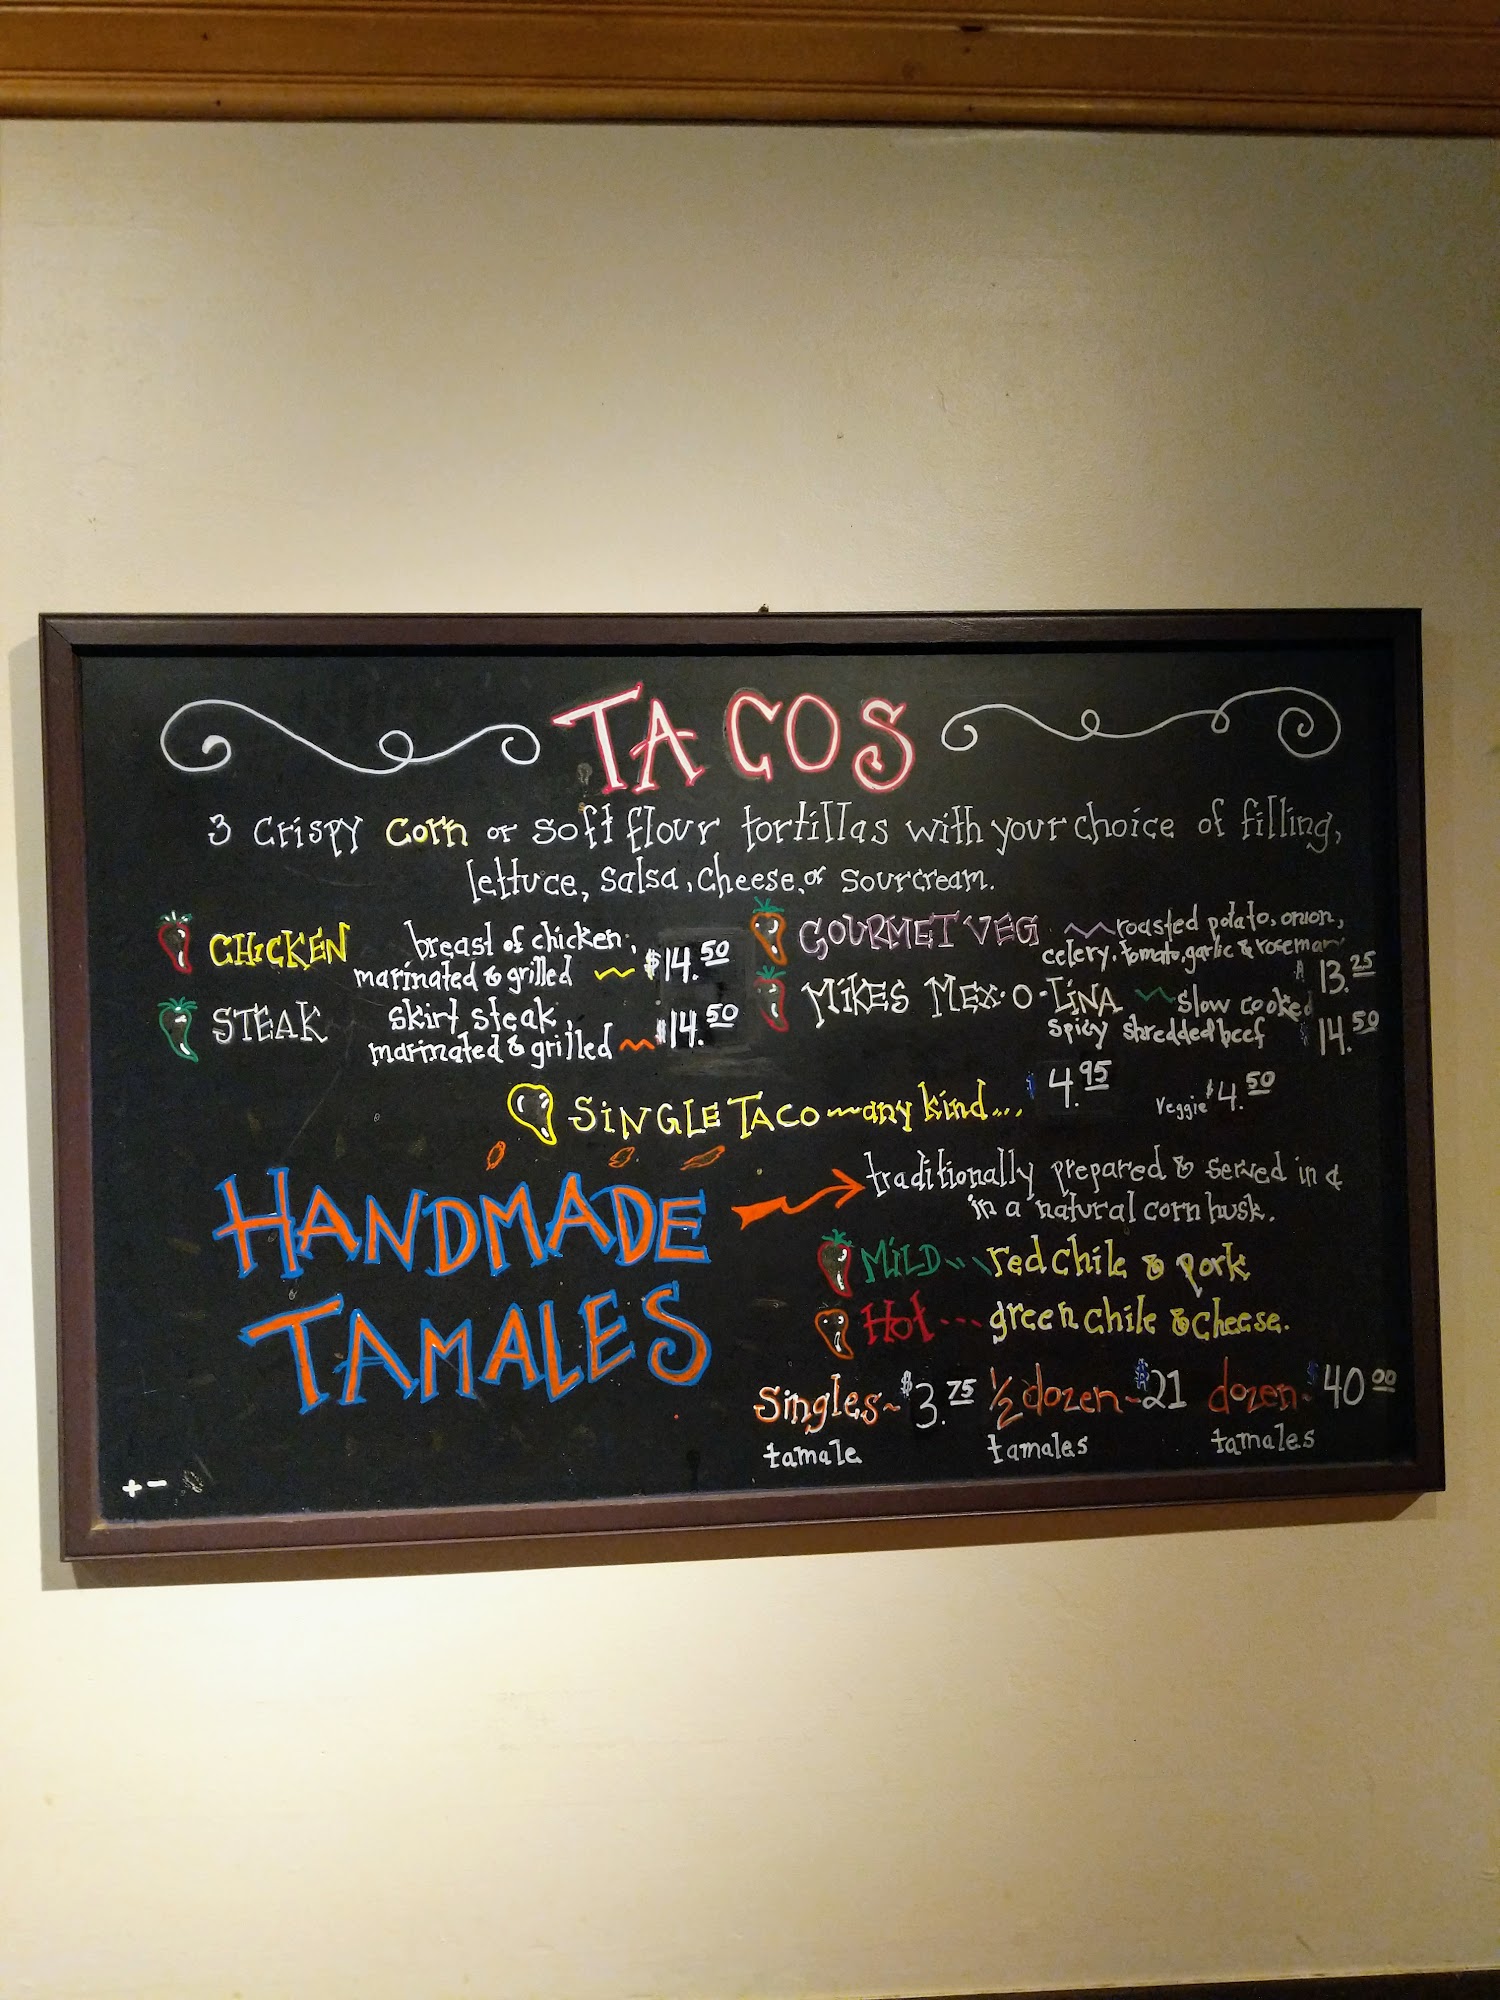 TACOS
3 crispy corn or soft flour tortillas with your choice of filling,
lettuce, salsa, cheese, or sourcream.
CHICKEN breast of chicken,
marinated & grilled $14.50
STEAK skirt steak,
marinated & grilled $14.50
GOURMET VEG roasted potato, onion,
celery, tomato, garlic & rosemary
$13.25
MIKES MEX-O-LINA slow cooked
spicy shredded beef $14.50
SINGLE TACO any kind... $4.95 veggie $4.50
HANDMADE
TAMALES
traditionally prepared & served in a
in a natural corn husk.
MILD red chile & pork
Hot --- green chile & cheese.
Singles $3.75 1/2 dozen $21 dozen $40.00
tamale tamales tamales
+ -